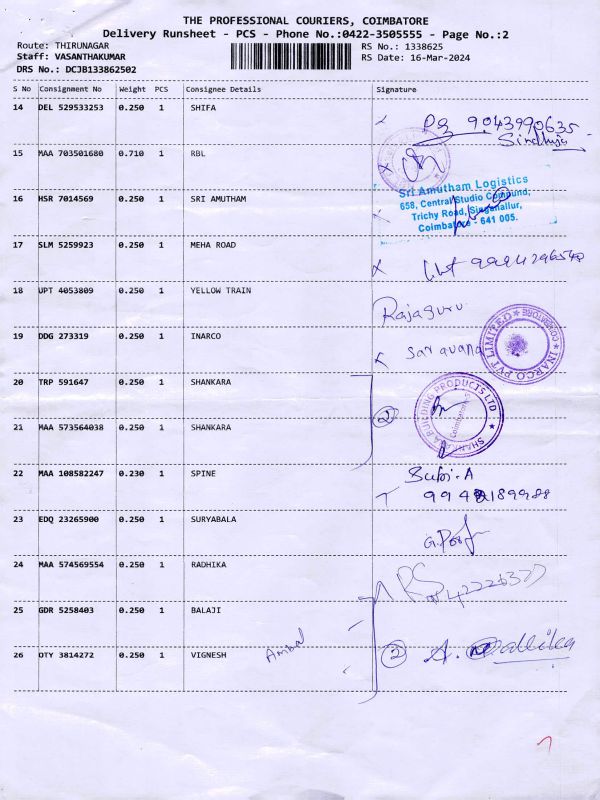 THE PROFESSIONAL COURIERS, COIMBATORE
Delivery Runsheet - PCS - Phone No.:0422-3505555 - Page No.:2
Route: THIRUNAGAR
Staff: VASANTHAKUMAR
DRS No.: DCJB133862502
RS No.: 1338625
RS Date: 16-Mar-2024
S No Consignment No Weight PCS Consignee Details Signature
14 DEL 529533253 0.250 1 SHIFA
9043990635
Sindhuja
15 MAA 703501680 0.710 1 RBL
16 HSR 7014569 0.250 1 SRI AMUTHAM
Sri Amutham Logistics
658, Central Studio Compound,
Trichy Road, Singanallur,
Coimbatore - 641 005.
17 SLM 5259923 0.250 1 MEHA ROAD
18 UPT 4053809 0.250 1 YELLOW TRAIN
Rajaguru
19 DDG 273319 0.250 1 INARCO
Saravana
INARCO PVT LIMITED ★ COIMBATORE ★
20 TRP 591647 0.250 1 SHANKARA
21 MAA 573564038 0.250 1 SHANKARA
2
SHANKARA BUILDING PRODUCTS LTD ★
Coimbatore
22 MAA 108582247 0.230 1 SPINE
23 EDQ 23265900 0.250 1 SURYABALA
24 MAA 574569554 0.250 1 RADHIKA
25 GDR 5258403 0.250 1 BALAJI
26 OTY 3814272 0.250 1 VIGNESH
Ambal